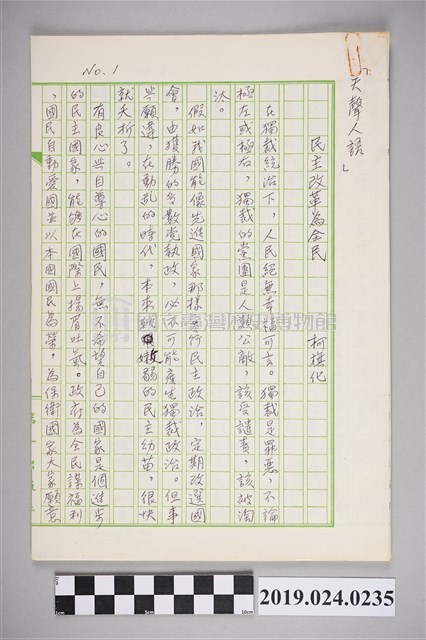 「天聲人語」
NO. 1
民主改革為全民
柯旗化
在獨裁統治下，人民絕無幸福可言。獨裁是罪惡，不論
極左或極右，獨裁的黨團是人類公敵，該受譴責，該被淘
汰。
假如我國能像先進國家那樣實行民主政治，定期改選國
會，由獲勝的多數黨執政，必不可能產生獨裁政治。但事
與願違，在動亂的時代，本來就嫩弱的民主幼苗，很快
就夭折了。
有良心與自尊心的國民，無不希望自己的國家是個進步
的民主國家，能夠在國際上揚眉吐氣。政府為全民謀福利
，國民自動愛國並以本國國民為榮，為保衛國家大家願意
國立臺灣歷史博物館
1cm
5cm
10cm
2019.024.0235